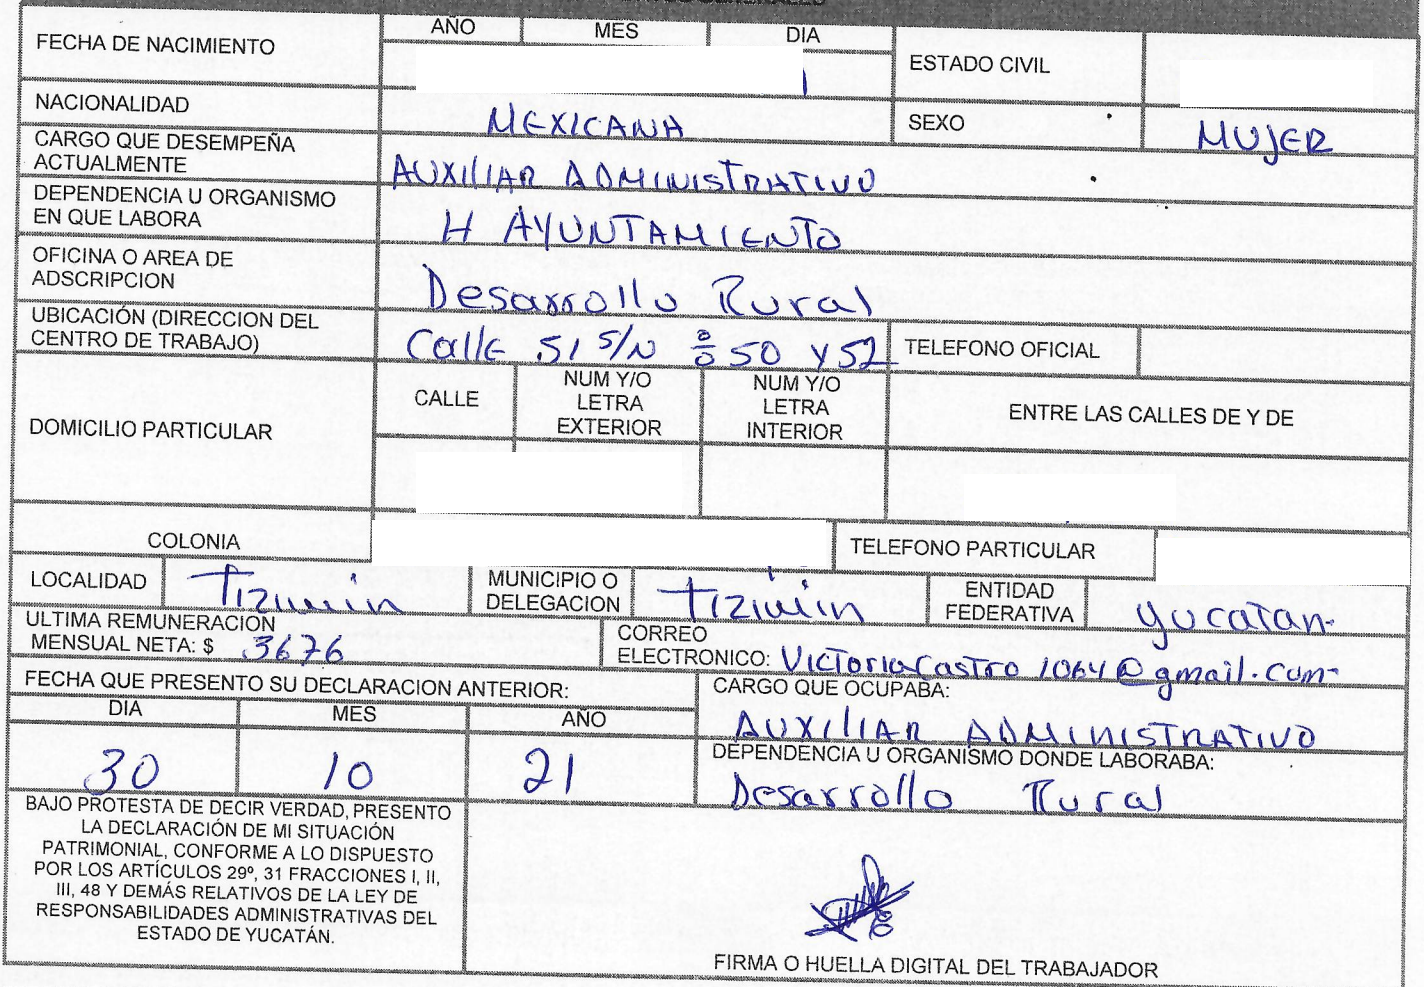 FECHA DE NACIMIENTO
AÑO MES DIA
ESTADO CIVIL
NACIONALIDAD MEXICANA SEXO MUJER
CARGO QUE DESEMPEÑA
ACTUALMENTE
AUXILIAR ADMINISTRATIVO
DEPENDENCIA U ORGANISMO
EN QUE LABORA
H AYUNTAMIENTO
OFICINA O AREA DE
ADSCRIPCION
Desarrollo Rural
UBICACIÓN (DIRECCION DEL
CENTRO DE TRABAJO)
Calle 51 S/N 50 y 52
TELEFONO OFICIAL
DOMICILIO PARTICULAR
CALLE
NUM Y/O
LETRA
EXTERIOR
NUM Y/O
LETRA
INTERIOR
ENTRE LAS CALLES DE Y DE
COLONIA
TELEFONO PARTICULAR
LOCALIDAD Tizimin
MUNICIPIO O
DELEGACION
Tizimin
ENTIDAD
FEDERATIVA
Yucatan
ULTIMA REMUNERACION
MENSUAL NETA: $ 3676
CORREO
ELECTRONICO: VictoriaCastro1064@gmail.com
FECHA QUE PRESENTO SU DECLARACION ANTERIOR:
DIA MES AÑO
30 10 21
CARGO QUE OCUPABA:
AUXILIAR ADMINISTRATIVO
DEPENDENCIA U ORGANISMO DONDE LABORABA:
Desarrollo Rural
BAJO PROTESTA DE DECIR VERDAD, PRESENTO
LA DECLARACIÓN DE MI SITUACIÓN
PATRIMONIAL, CONFORME A LO DISPUESTO
POR LOS ARTÍCULOS 29º, 31 FRACCIONES I, II,
III, 48 Y DEMÁS RELATIVOS DE LA LEY DE
RESPONSABILIDADES ADMINISTRATIVAS DEL
ESTADO DE YUCATÁN.
FIRMA O HUELLA DIGITAL DEL TRABAJADOR